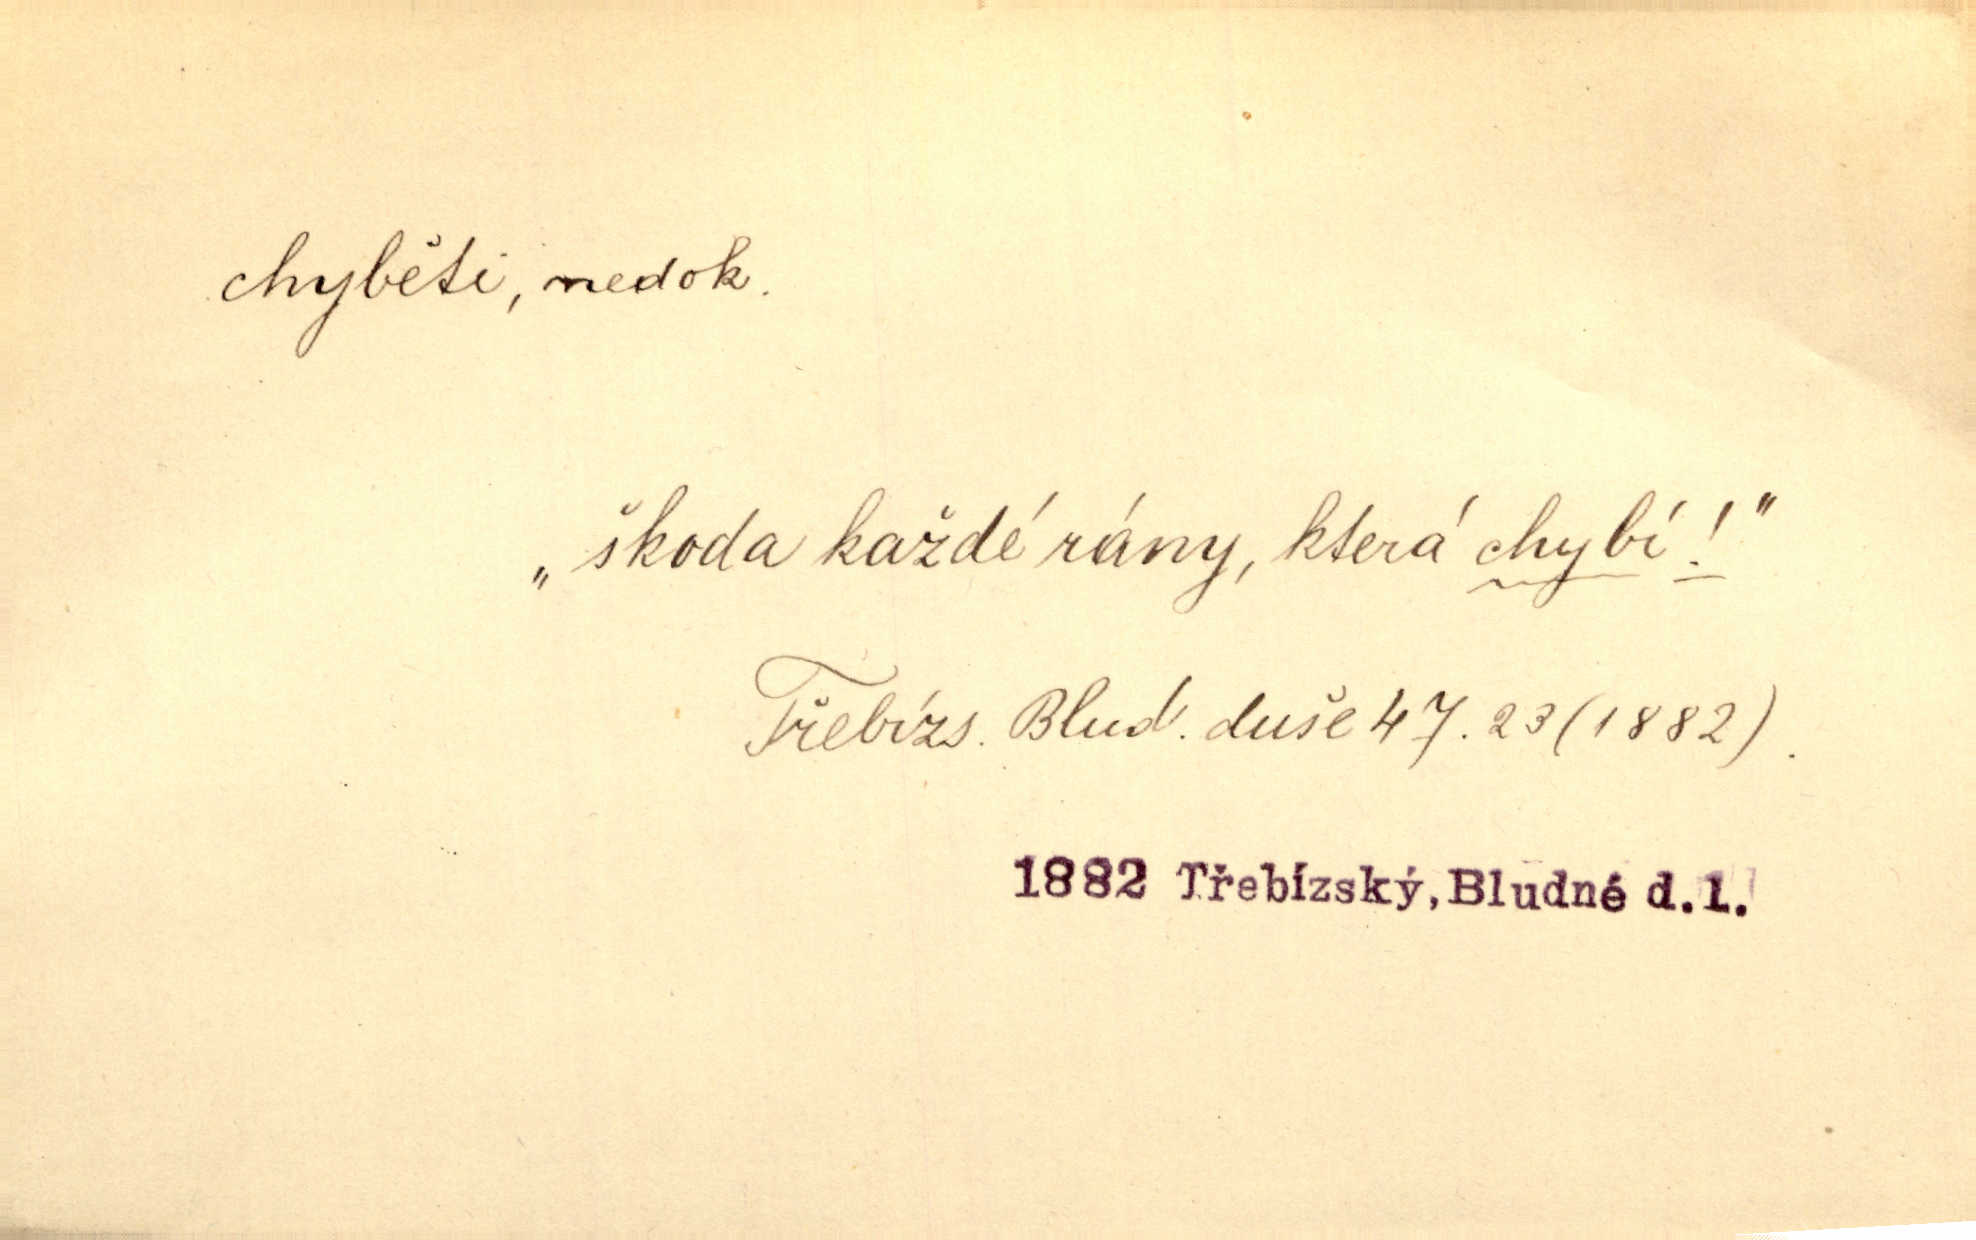 chyběti, nedok.
„škoda každé rány, která chybí!"
Třebízs. Blud. duše 47. 23 (1882).
1882 Třebízský, Bludné d.1.